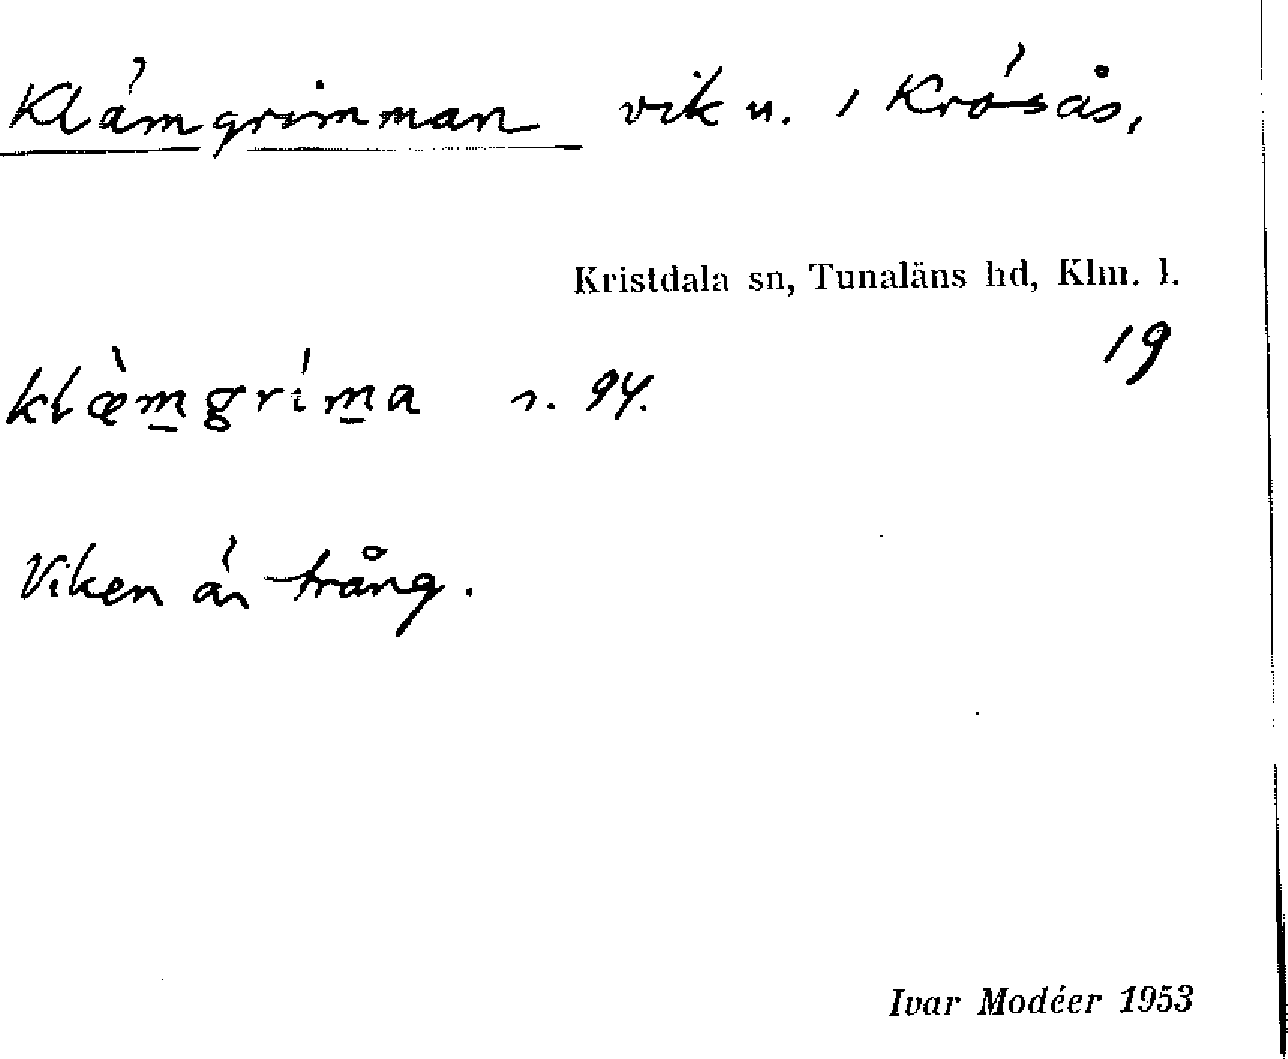 Klämgrimman vik u. i Krösås,
Kristdala sn, Tunaläns hd, Klm. l.
19
klæ̀m̲grím̲a s. 94.
Viken är trång.
Ivar Modéer 1953